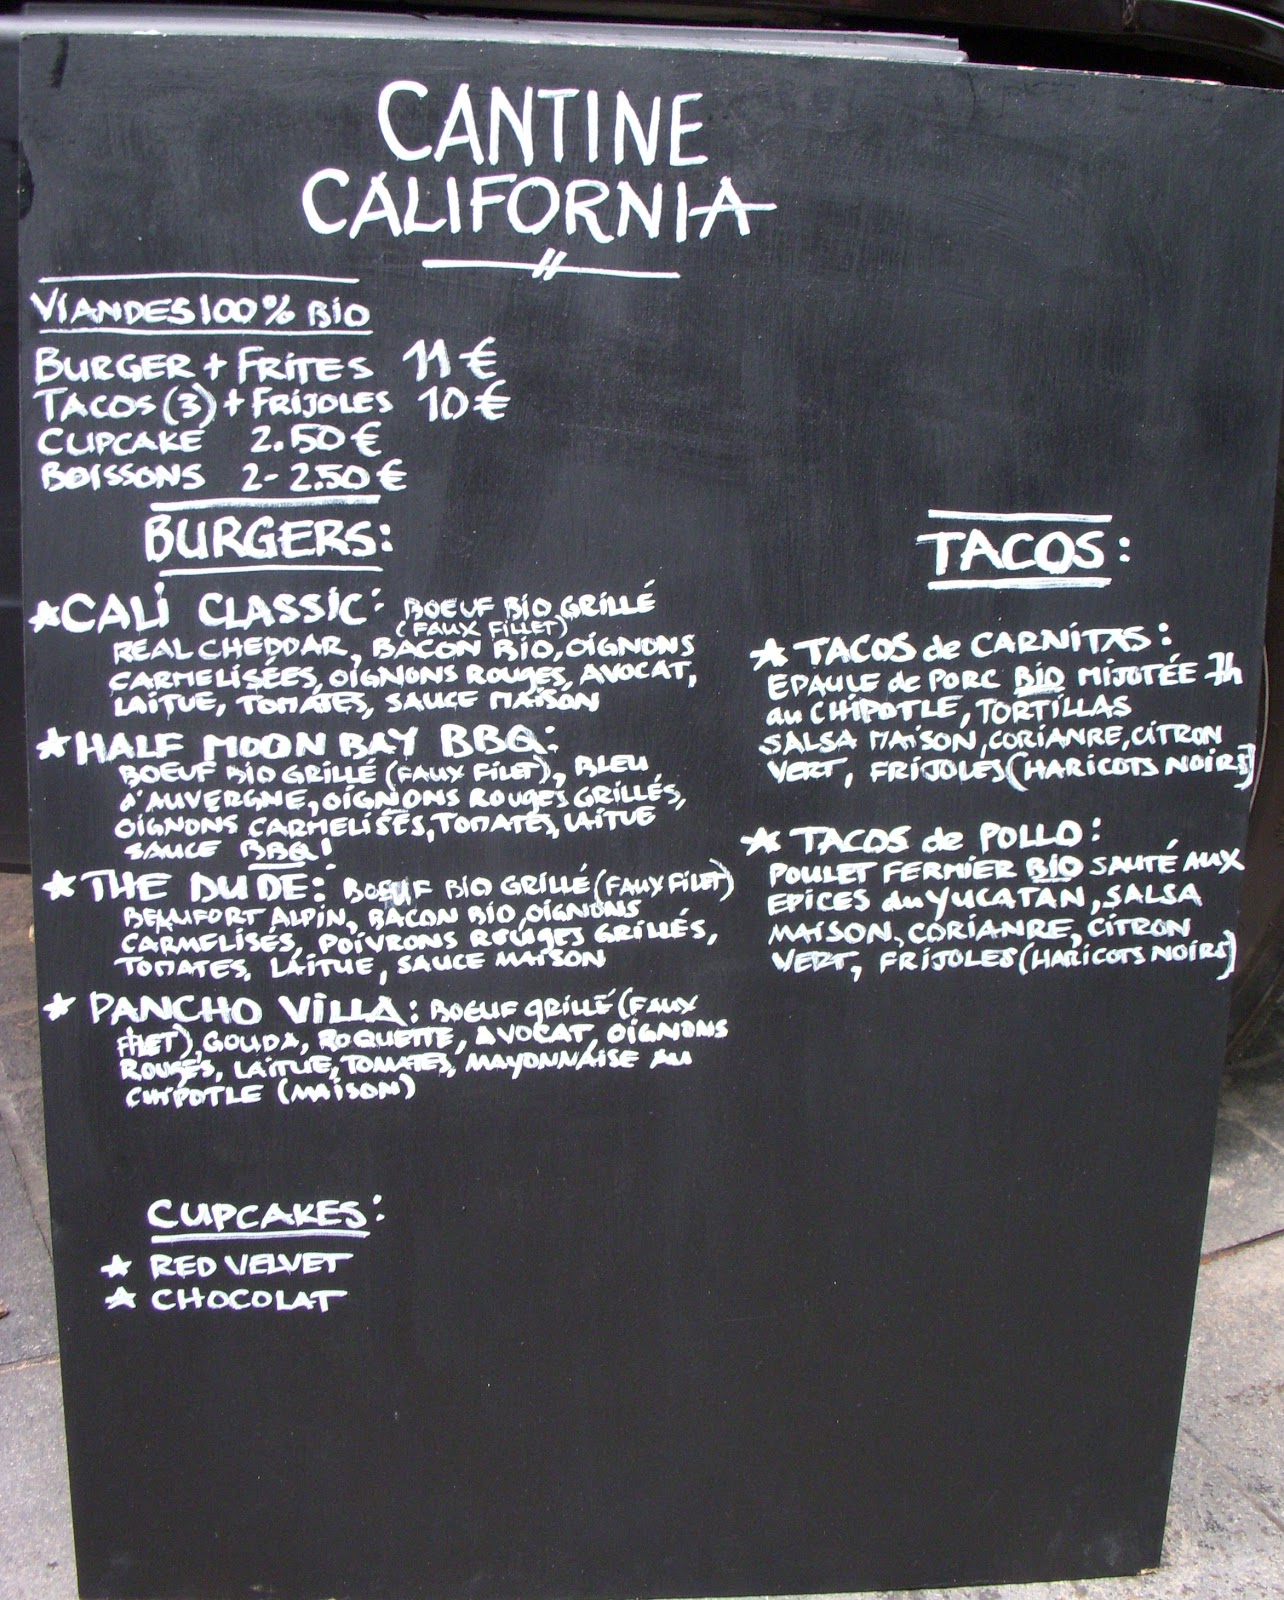 CANTINE
CALIFORNIA
VIANDES 100% BIO
BURGER + FRITES 11 €
TACOS (3) + FRIJOLES 10 €
CUPCAKE 2.50 €
BOISSONS 2 - 2.50 €
BURGERS:
★ CALI CLASSIC: BOEUF BIO GRILLÉ
(FAUX FILLET)
REAL CHEDDAR, BACON BIO, OIGNONS
CARMELISÉES, OIGNONS ROUGES, AVOCAT,
LAITUE, TOMATES, SAUCE MAISON
★ HALF MOON BAY BBQ:
BOEUF BIO GRILLÉ (FAUX FILET), BLEU
d'AUVERGNE, OIGNIONS ROUGES GRILLÉS,
OIGNONS CARMELISÉS, TOMATES, LAITUE
SAUCE BBQ!
★ THE DUDE: BOEUF BIO GRILLÉ (FAUX FILET)
BEAUFORT ALPIN, BACON BIO, OIGNONS
CARMELISÉS, POIVRONS ROUGES GRILLÉS,
TOMATES, LAITUE, SAUCE MAISON
★ PANCHO VILLA: BOEUF GRILLÉ (FAUX
FILET), GOUDA, ROQUETTE, AVOCAT, OIGNONS
ROUGES, LAITUE, TOMATES, MAYONNAISE AU
CHIPOTLE (MAISON)
CUPCAKES:
★ RED VELVET
★ CHOCOLAT
TACOS:
★ TACOS de CARNITAS:
EPAULE de PORC BIO MIJOTÉE 7h
au CHIPOTLE, TORTILLAS
SALSA MAISON, CORIANRE, CITRON
VERT, FRIJOLES (HARICOTS NOIRS)
★ TACOS de POLLO:
POULET FERMIER BIO SAUTÉ AUX
EPICES du YUCATAN, SALSA
MAISON, CORIANRE, CITRON
VERT, FRIJOLES (HARICOTS NOIRS)